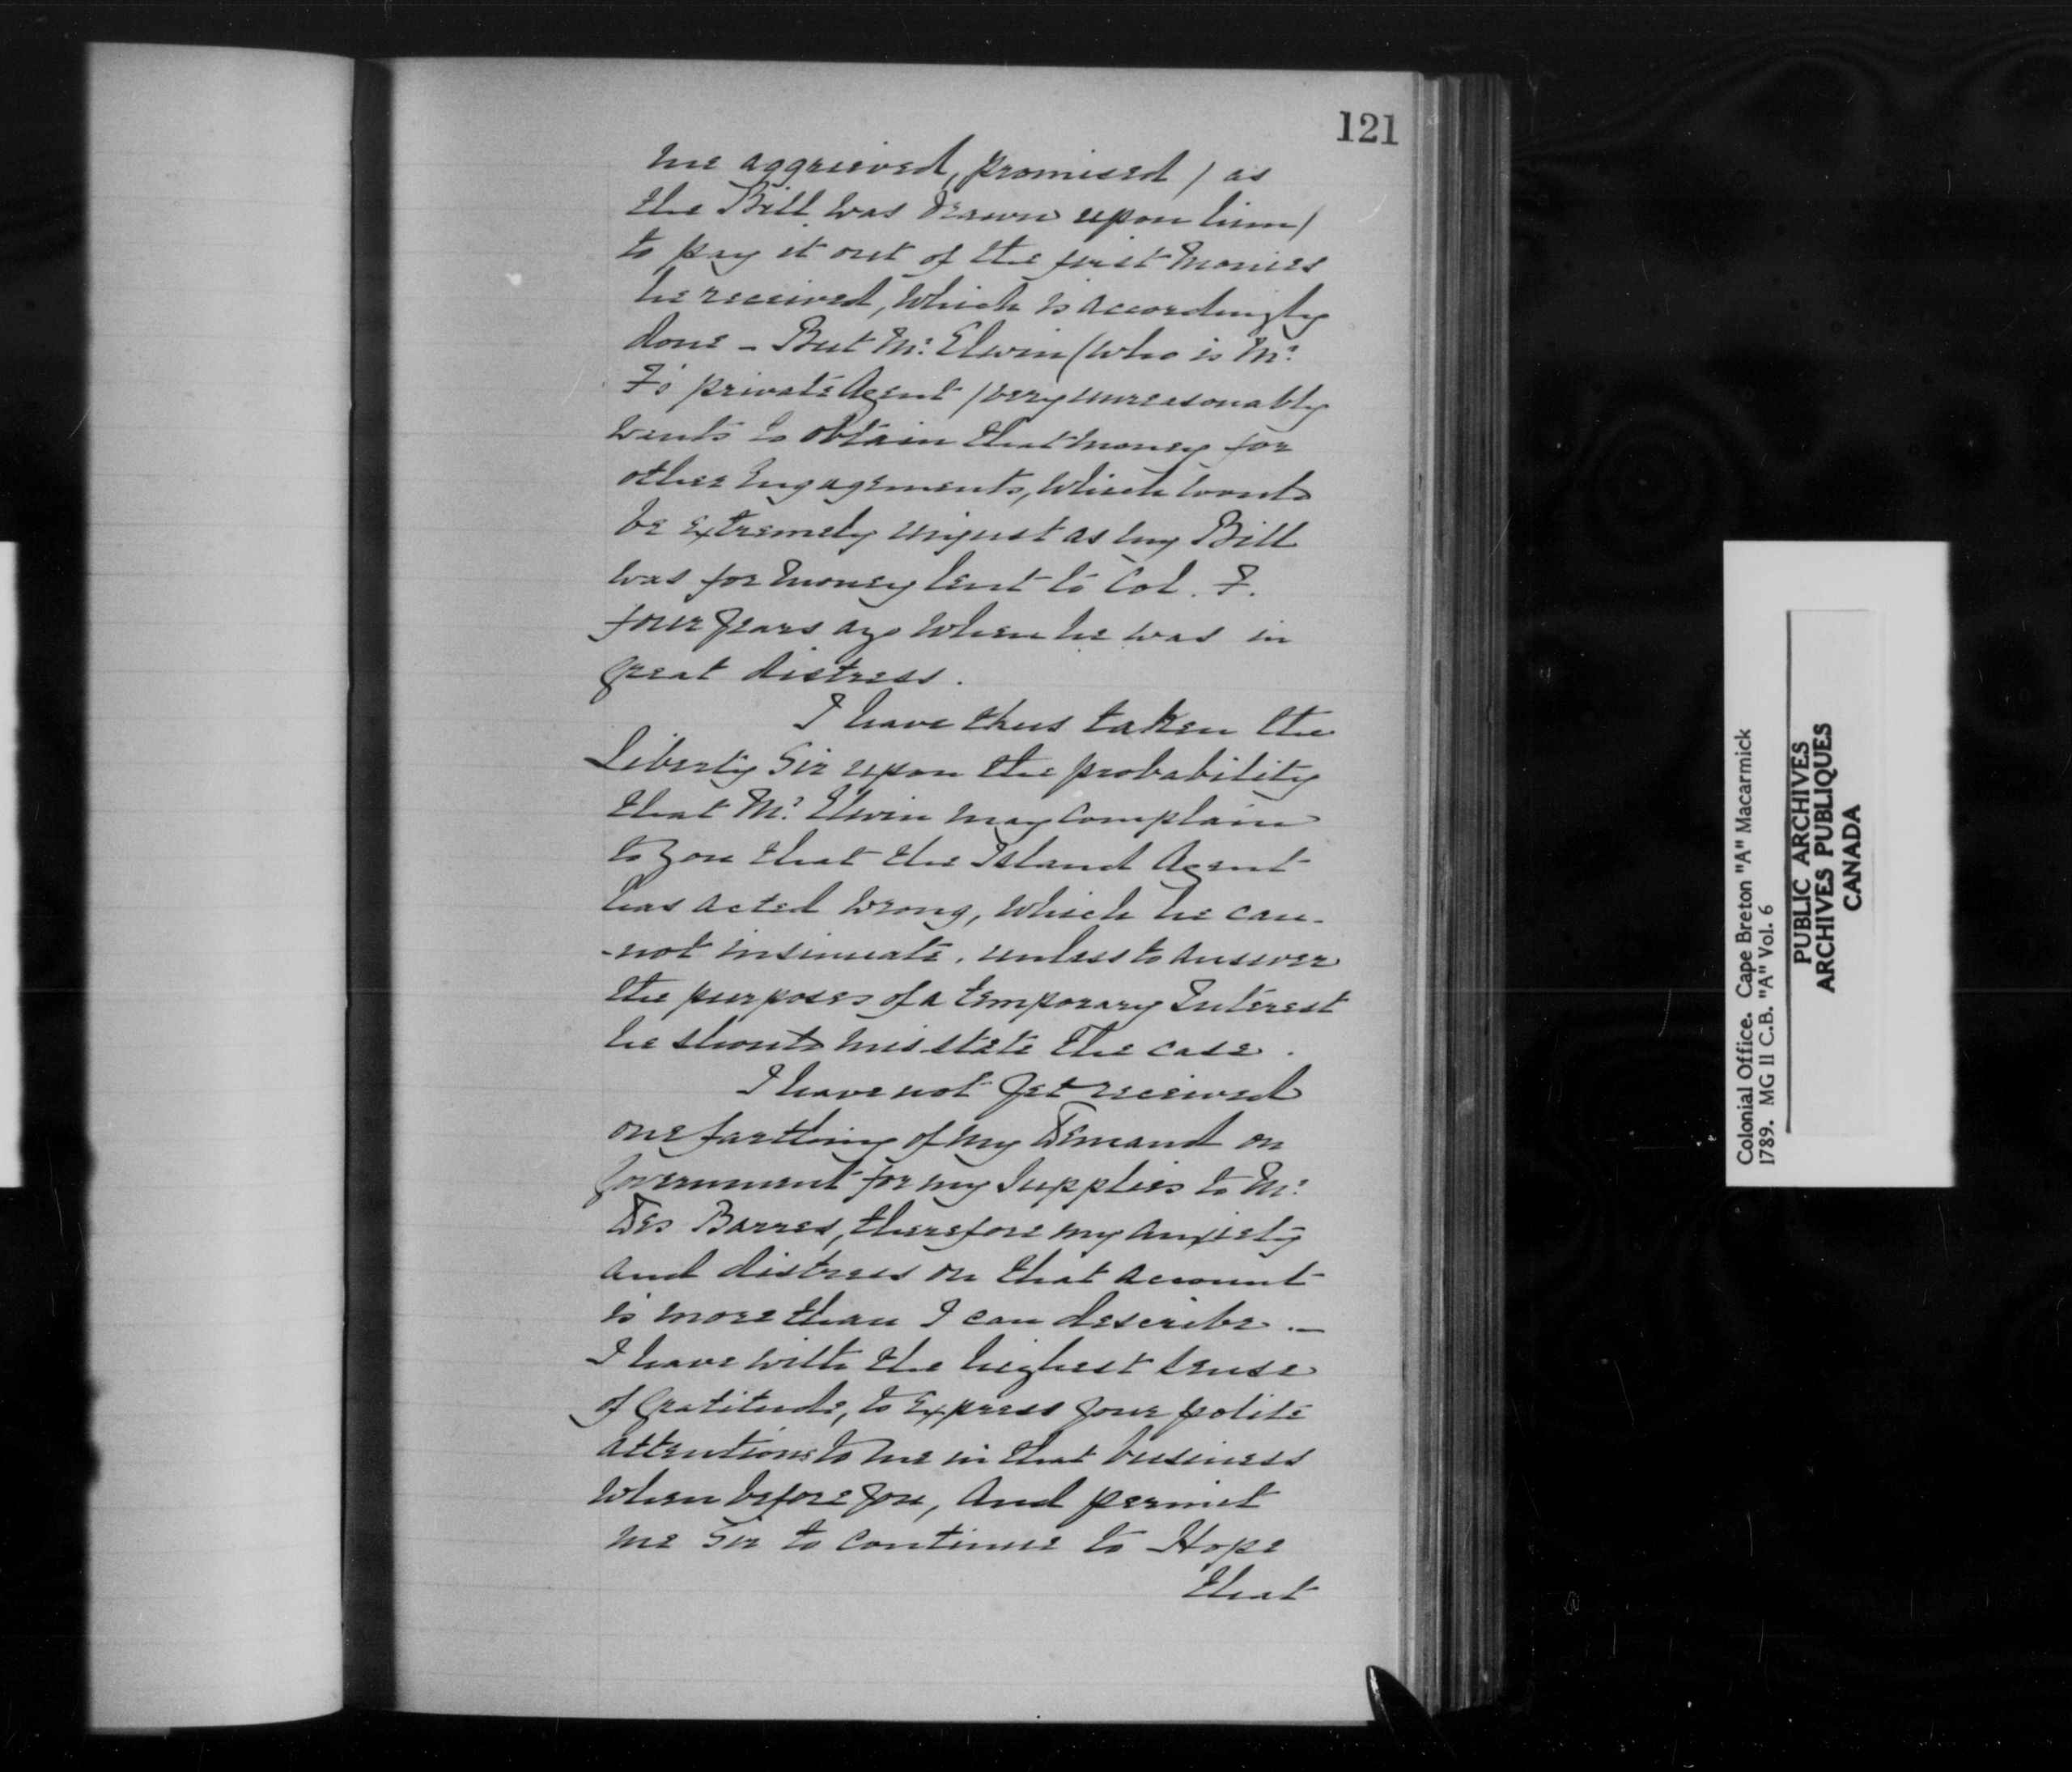 121
me aggrieved, promised / as
the Bill was drawn upon him /
to pay it out of the first Monies
he received, which is accordingly
done - But Mr. Elwin (who is Mr.
F's private Agent / very unreasonably
wants to obtain that money for
other Engagements, which would
be extremely unjust as my Bill
was for money lent to Col. F.
four years ago when he was in
great distress.
I have thus taken the
Liberty Sir upon the probability
that Mr. Elwin may complain
to you that the Island Agent
has acted wrong, which he can-
-not insinuate, unless to answer
the purposes of a temporary Interest
he should misstate the case.
I have not yet received
one farthing of my Demand on
Government for my Supplies to Mr.
Des Barres, therefore my anxiety
and distress on that account
is more than I can describe. —
I have with the highest sense
of Gratitude, to express your polite
attentions to me in that business
when before you, and permit
me Sir to continue to Hope
that
Colonial Office. Cape Breton "A" Macarmick
1789. MG 11 C.B. "A" Vol. 6
PUBLIC ARCHIVES
ARCHIVES PUBLIQUES
CANADA